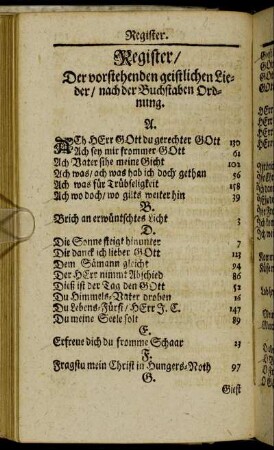 Register.
Register/
Der vorstehenden geistlichen Lie-
der/ nach der Buchstaben Ord-
nung.
A.
ACh HErr GOtt du gerechter GOtt 150
Ach sey mir frommer GOtt 61
Ach Vater sihe meine Gicht 102
Ach was/ ach was hab ich doch gethan 56
Ach was für Trübseligkeit 158
Ach wo doch/ wo gilts weiter hin 39
B.
Brich an erwüntschtes Licht 3
D.
Die Sonne steigt hinunter 7
Dir danck ich lieber GOtt 113
Dem Sämann gleicht 94
Der HErr nimmt Abschied 86
Diß ist der Tag den GOtt 52
Du Himmels-Vater droben 16
Du Lebens-Fürst/ HErr J. C. 147
Du meine Seele solt 89
E.
Erfreue dich du fromme Schaar 23
F.
Fragstu mein Christ in Hungers-Noth 97
G.
Giest